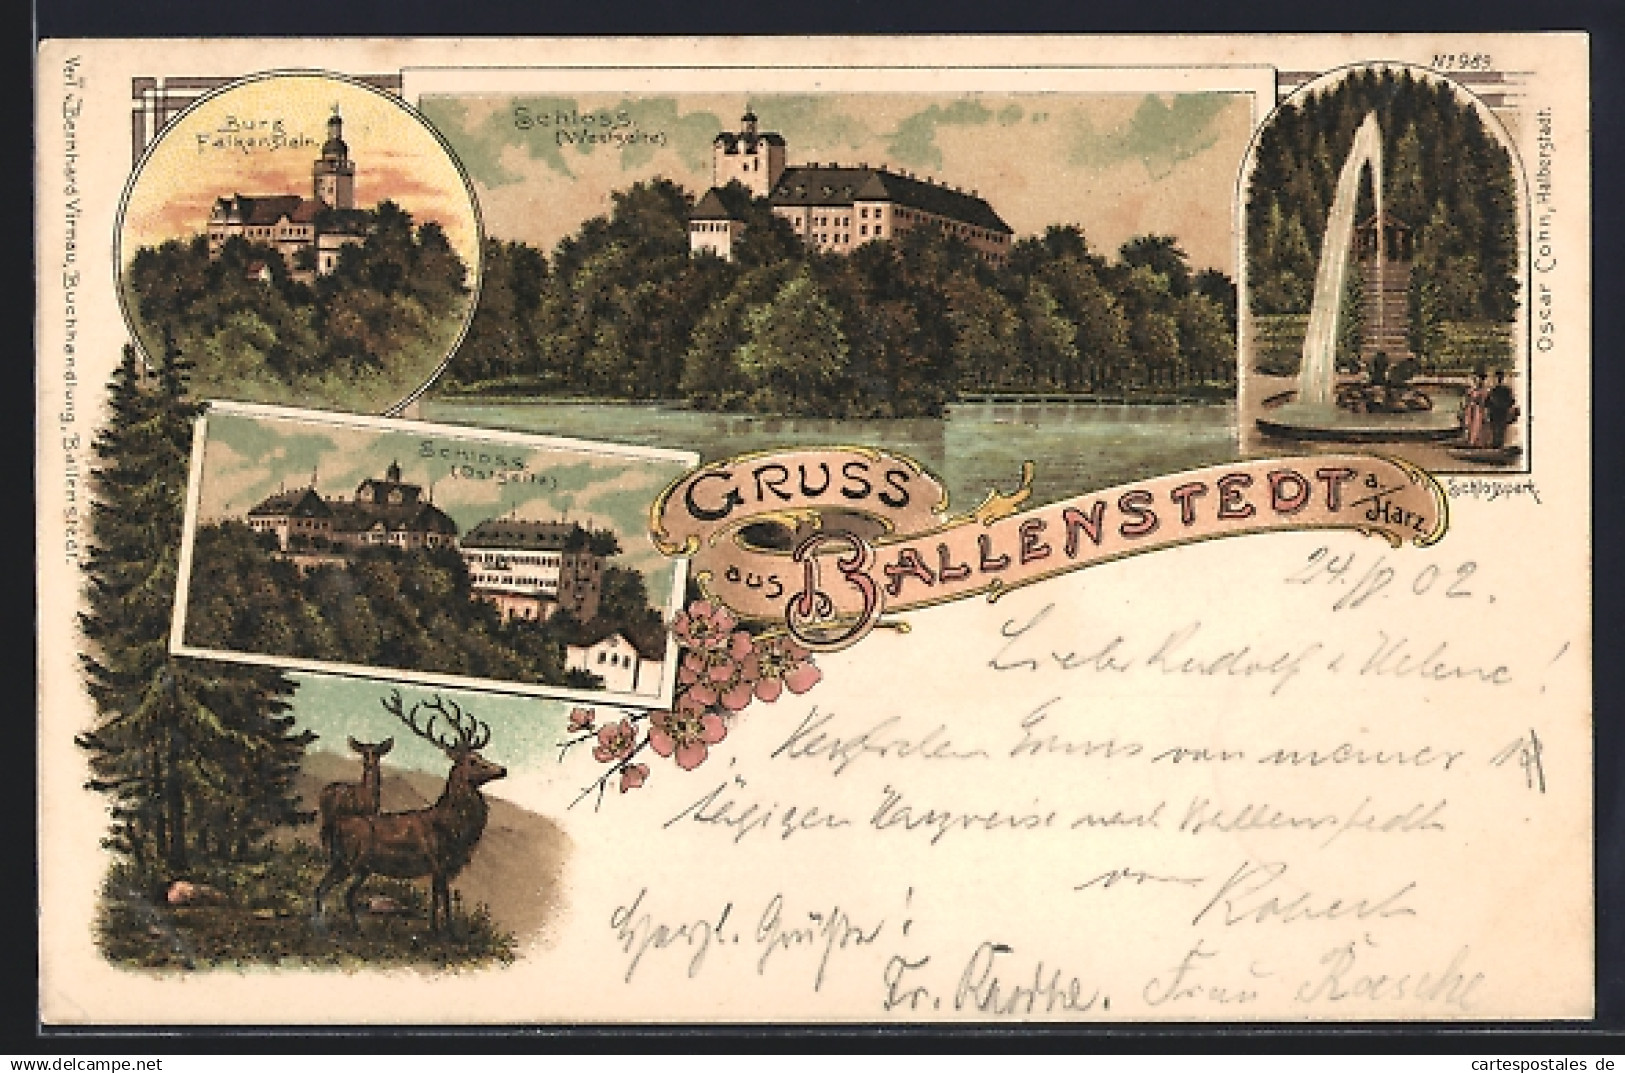 Burg
Falkenstein.
Schloss.
(Westseite)
No 989
Schloss.
(Ostseite)
Schlosspark
GRUSS
aus BALLENSTEDT a/Harz.
Verl. v. Bernhard Virnau, Buchhandlung, Ballenstedt.
Oscar Cohn, Halberstadt.
24./ 02.
Liebe Rudolf u Helene!
Gruss von meiner
tägigen Harzreise nach Ballenstedt
von
Robert
Herzl. Grüße!
Fr. Frau Raesche
cartespostales de